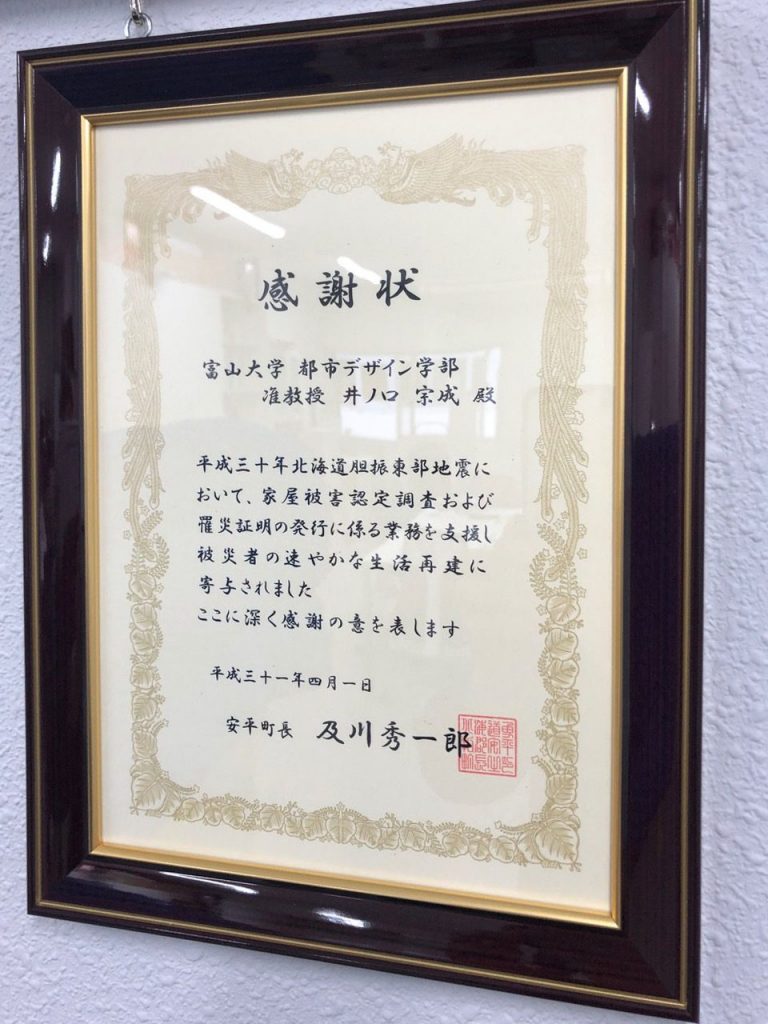 感謝状
富山大学 都市デザイン学部
准教授 井ノ口 宗成 殿
平成三十年北海道胆振東部地震に
おいて、家屋被害認定調査および
罹災証明の発行に係る業務を支援し
被災者の速やかな生活再建に
寄与されました
ここに深く感謝の意を表します
平成三十一年四月一日
安平町長 及川秀一郎